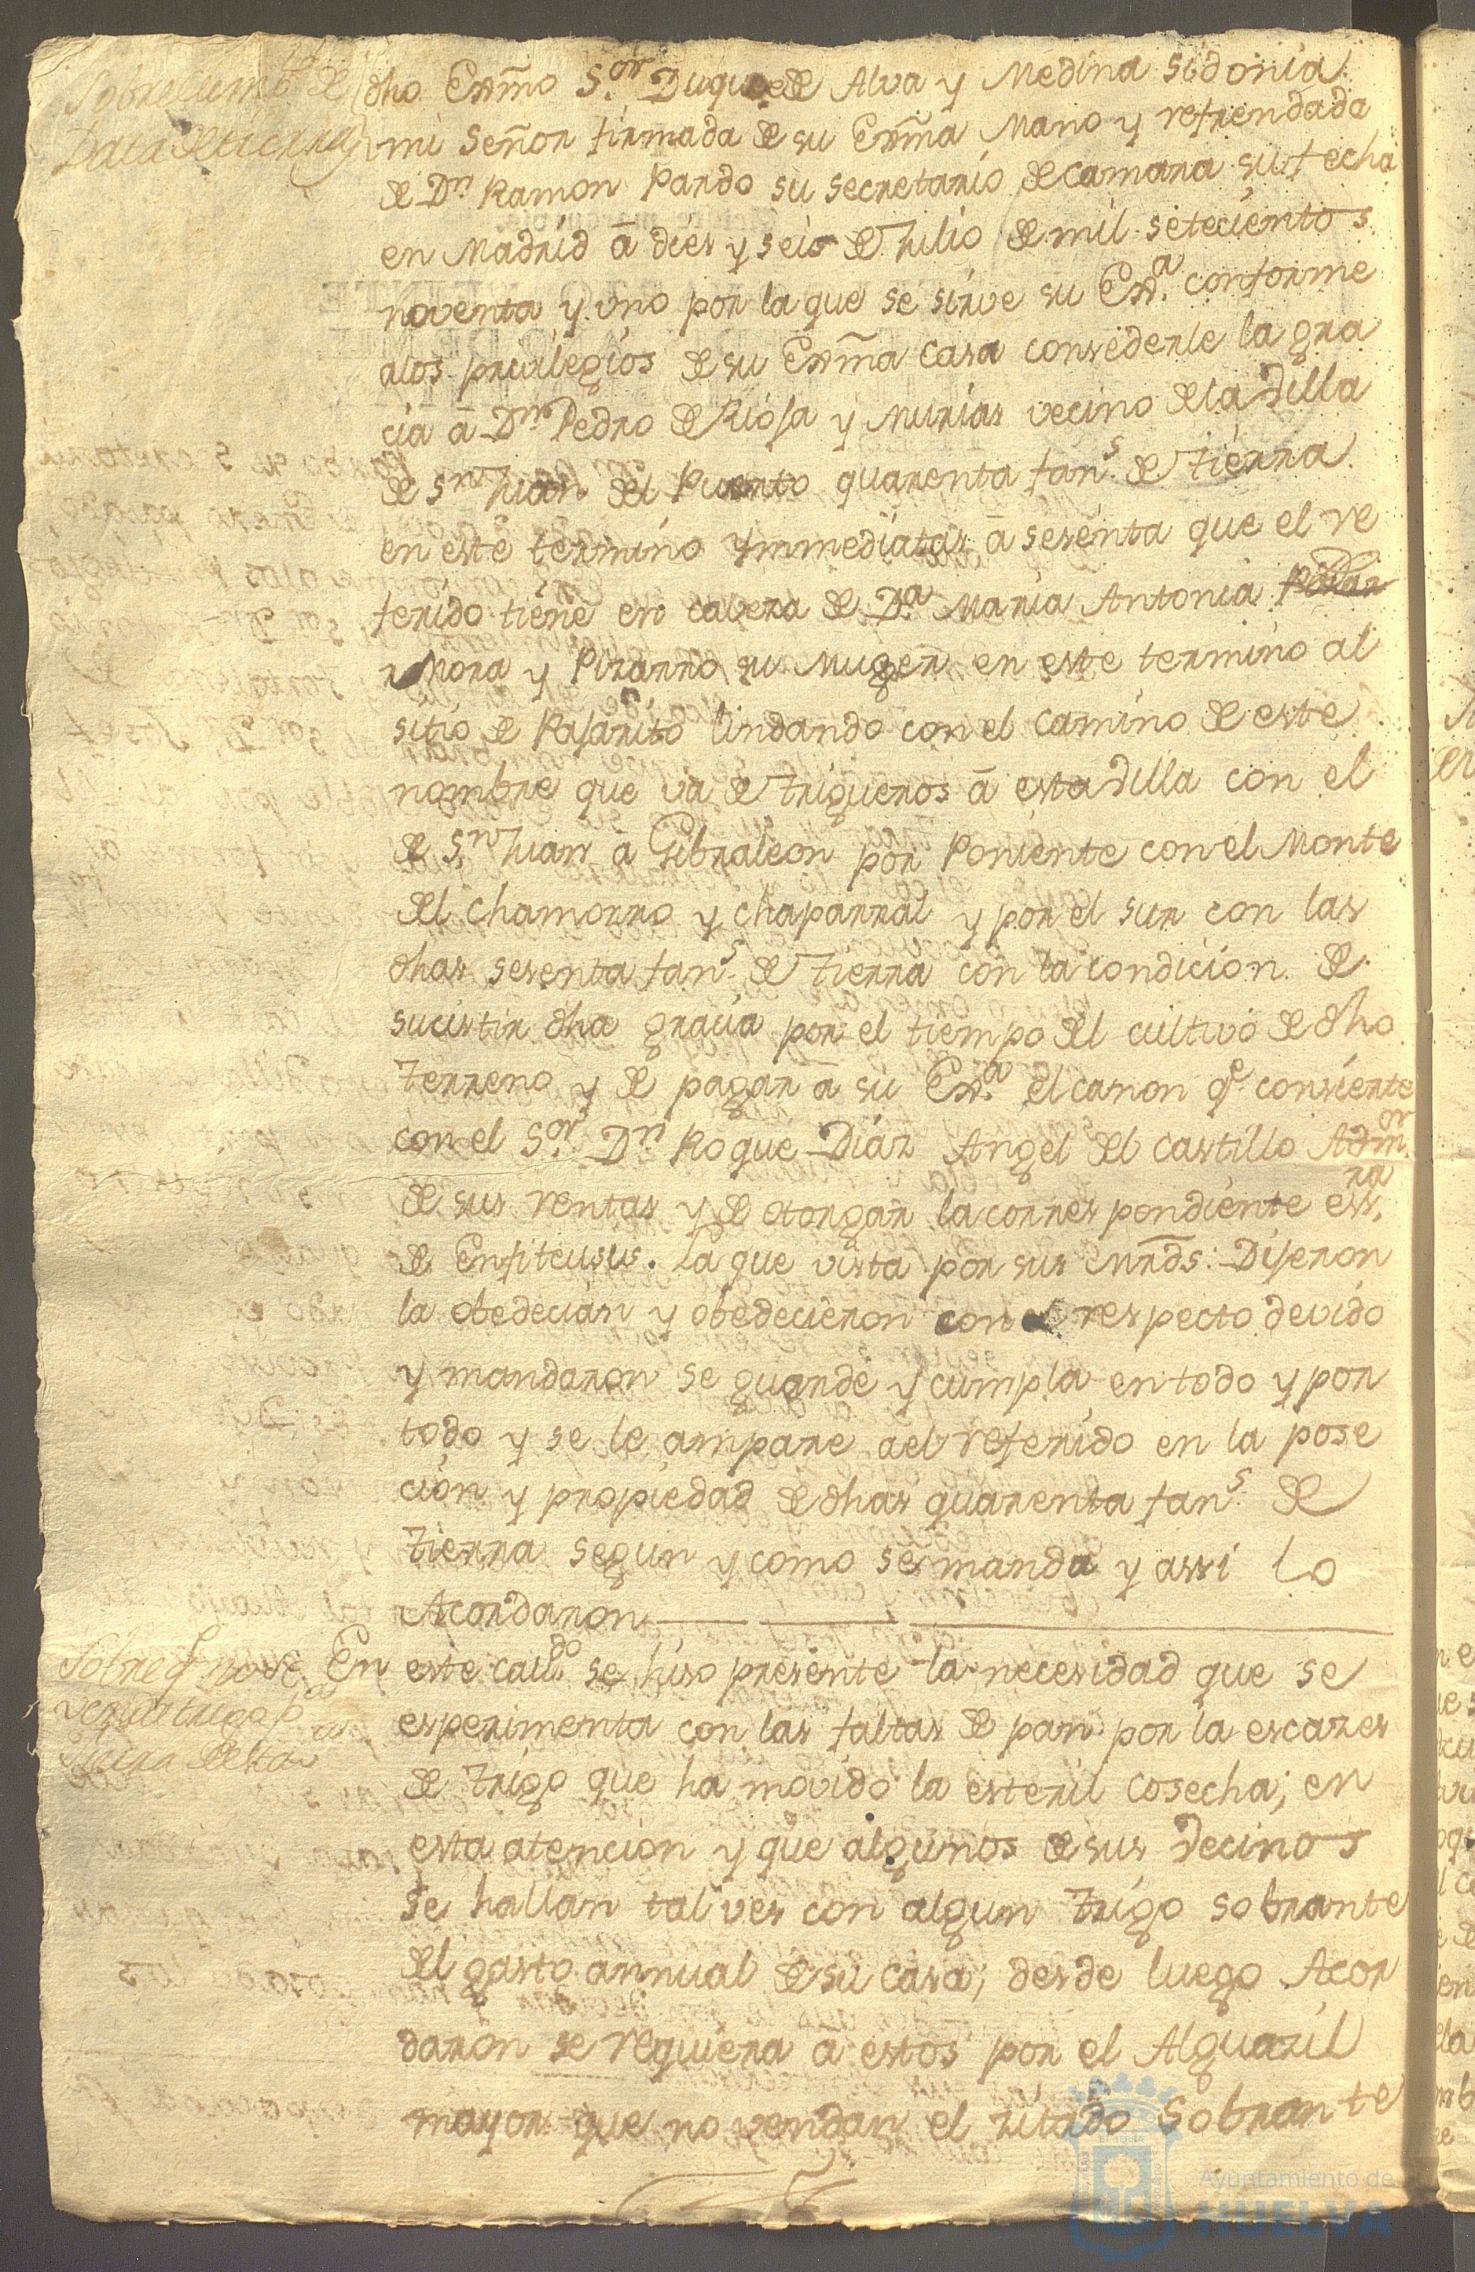 Sobre cumto de
Data de tierras
dho Exmo Sor Duque de Alva y Medina Sidonia
mi Señor firmada de su Exma Mano y refrendada
de Dn Ramon Pardo su secretario de camara su fecha
en Madrid â dies y seis de Julio de mil setecientos
noventa y uno por la que se sirve su Exa conforme
alos privilegios de su Exma Casa consederle la gra
cia â Dn Pedro de Riosa y Murias vecino de la Villa
de Sn Juan del Puerto quarenta fans de tierra
en este termino ymmediatas â sesenta que el re
ferido tiene en cavesa de Da Maria Antonia
Mora y Pizarro su Muger en este termino al
sitio de Pajarito lindando con el camino de este
nombre que va de Trigueros â esta Villa con el
de Sn Juan a Gibraleon por Poniente con el Monte
del Chamorro y chaparral y por el sur con las
dhas sesenta fans de Tierra con la condicion de
sucistir dha gracia por el tiempo del cultivo de dho
terreno y de pagar â su Exa el canon qe consierte
con el Sor Dn Roque Diaz Angel del Castillo Admor
de sus rentas y de otorgar la correspondiente essra
de Enfiteusis. La que vista por sus Mrds: Dijeron
la obedecian y obedecieron con el respecto devido
y mandaron se guarde y cumpla en todo y por
todo y se le ampare ael referido en la pose
cion y propiedad de dhas quarenta fans de
Tierra segun y como se manda y assi lo
Acordaron
Sobre q no se
venda trigo pa
fuera de esta va
En este cavdo se hiso presente la necesidad que se
esperimenta con las faltas de pan por la escases
de Trigo que ha movido la esteril cosecha; en
esta atencion y que algunos de sus Vecinos
se hallan tal ves con algun Trigo sobrante
del gasto annual de su casa; desde luego Acor
daron se requiera a estos por el Alguazil
mayor que no vendan el zitado sobrante
Ayuntamiento de
HUELVA